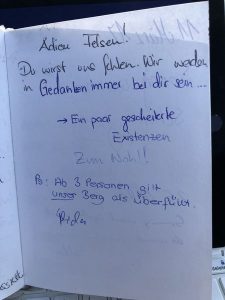 Adieu Felsen!
Du wirst uns fehlen. Wir werden
in Gedanken immer bei dir sein...
→ Ein paar gescheiterte
Existenzen
Zum Wohl!
PS: Ab 3 Personen gilt
unser Berg als überfüllt.